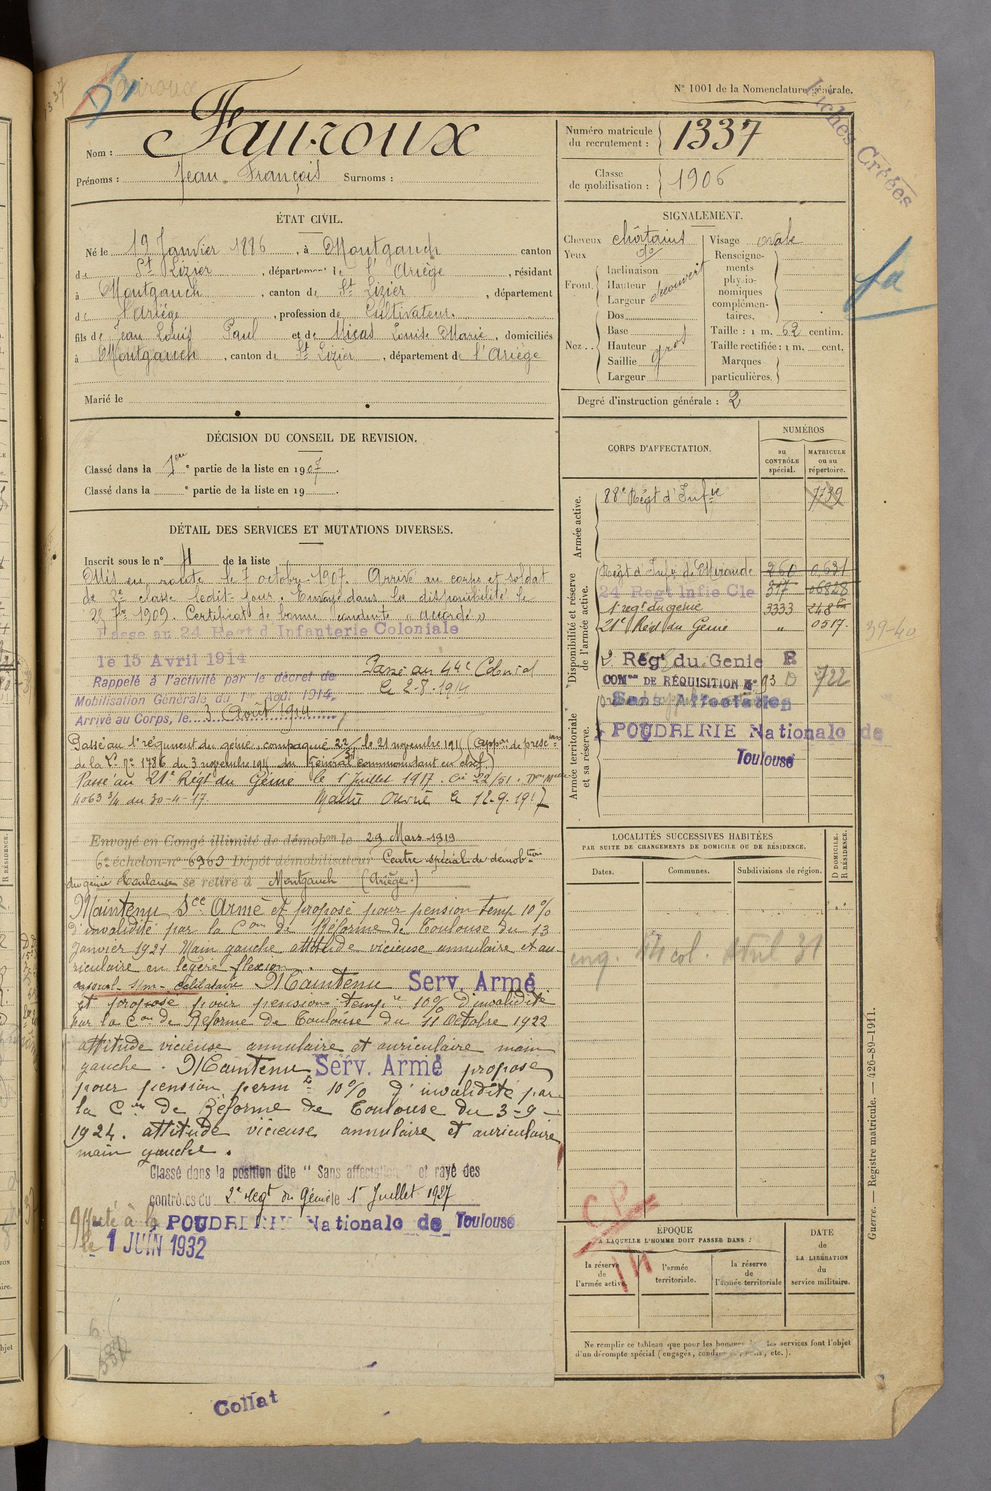 N° 1001 de la Nomenclature générale.
Fiches Créées
Nom : Fauroux
Prénoms : Jean François Surnoms :
Numéro matricule du recrutement : 1337
Classe de mobilisation : 1906
ÉTAT CIVIL.
Né le 19 Janvier 1886, à Montgauch canton
de St Lizier, département de l'Ariège, résidant
à Montgauch, canton de St Lizier, département
de l'Ariège, profession de Cultivateur
fils de Jean Louis Paul et de Micas Louise Marie, domiciliés
à Montgauch, canton de St Lizier, département de l'Ariège
Marié le
SIGNALEMENT.
Cheveux châtains
Yeux do
Front. Inclinaison
Hauteur
Largeur découvert
Nez.. Dos
Base
Hauteur gros
Saillie
Largeur
Visage ovale
Renseignements physionomiques complémentaires.
Taille : 1 m. 62 centim.
Taille rectifiée : 1 m. cent.
Marques particulières.
Degré d'instruction générale : 2
DÉCISION DU CONSEIL DE REVISION.
Classé dans la 1ere partie de la liste en 1907.
Classé dans la e partie de la liste en 19 .
DÉTAIL DES SERVICES ET MUTATIONS DIVERSES.
Inscrit sous le n° 11 de la liste
Mis en route le 7 octobre 1907. Arrivé au corps et soldat
de 2e classe ledit jour. Envoyé dans la disponibilité le
25 7bre 1909. Certificat de bonne conduite « accordé »
Passe au 24 Regt d'Infanterie Coloniale
le 15 Avril 1914
Rappelé à l'activité par le décret de
Mobilisation Générale du 1er Août 1914.
Arrivé au Corps, le 3 Août 1914
Passé au 44e Colonial
le 2-8-1914
Passé au 1er régiment du génie, compagnie 22/ le 21 novembre 1914
de la No 1786 du 3 novembre 1914 du Général commandant en chef.)
Passé au 21e Régt du Génie le 1 Juillet 1917. Cie 22/51.
4063 3/4 du 30-4-17. Maitre Ouvrié le 12-9-1917
Envoyé en Congé illimité de démobon le 29 Mars 1919
6e échelon no 6969 Dépôt démobilisateur Centre spécial de démobtion
du génie Toulouse se retire à Montgauch (Ariège.)
Maintenu Sce Armé et proposé pour pension temp 10 %
d'invalidité par la Con de Réforme de Toulouse du 13
Janvier 1921 Main gauche attitude vicieuse annulaire et au-
riculaire en légère flexion.
célibataire Maintenu Serv. Armé
et proposé pour pension tempre 10% d'invalidité
par la Con de Réforme de Toulouse du 11 Octobre 1922
attitude vicieuse annulaire et auriculaire main
gauche. Maintenu Serv. Armé proposé
pour pension permte 10% d'invalidité par
la Con de Réforme de Toulouse du 3-9-
1924. attitude vicieuse annulaire et auriculaire
main gauche.
Classé dans la position dite " Sans affectation " et rayé des
contrôles du 2e regt du Génie le 1er Juillet 1927
Affecté à la POUDRERIE Nationale de Toulouse
le 1 JUIN 1932
Collat
CORPS D'AFFECTATION.
NUMÉROS
DU CONTRÔLE spécial.
MATRICULE ou au répertoire.
Armée active.
88e Régt d'Infie 1739
Disponibilité et réserve de l'armée active.
Régt d'Infie de Mirande 260 0631
24 Regt Infie Cle 317 06828
1er regt du génie 3333
21e Régt du Génie " 0517.
39-40
2e Régt du Genie R
COMon DE RÉQUISITION No 93 D 722
Sans Affectation
Armée territoriale et sa réserve.
POUDRERIE Nationale de
Toulouse
LOCALITÉS SUCCESSIVES HABITÉES
PAR SUITE DE CHANGEMENTS DE DOMICILE OU DE RÉSIDENCE.
Dates. Communes. Subdivisions de région.
D DOMICILE. R RÉSIDENCE.
CP
ÉPOQUE
A LAQUELLE L'HOMME DOIT PASSER DANS :
la réserve de l'armée active.
l'armée territoriale.
la réserve de l'armée territoriale
DATE de LA LIBÉRATION du service militaire.
Ne remplir ce tableau que pour les hommes dont les services font l'objet
d'un décompte spécial (engagés, condamnés, omis, etc.).
Guerre. — Registre matricule. — 426-89-1911.